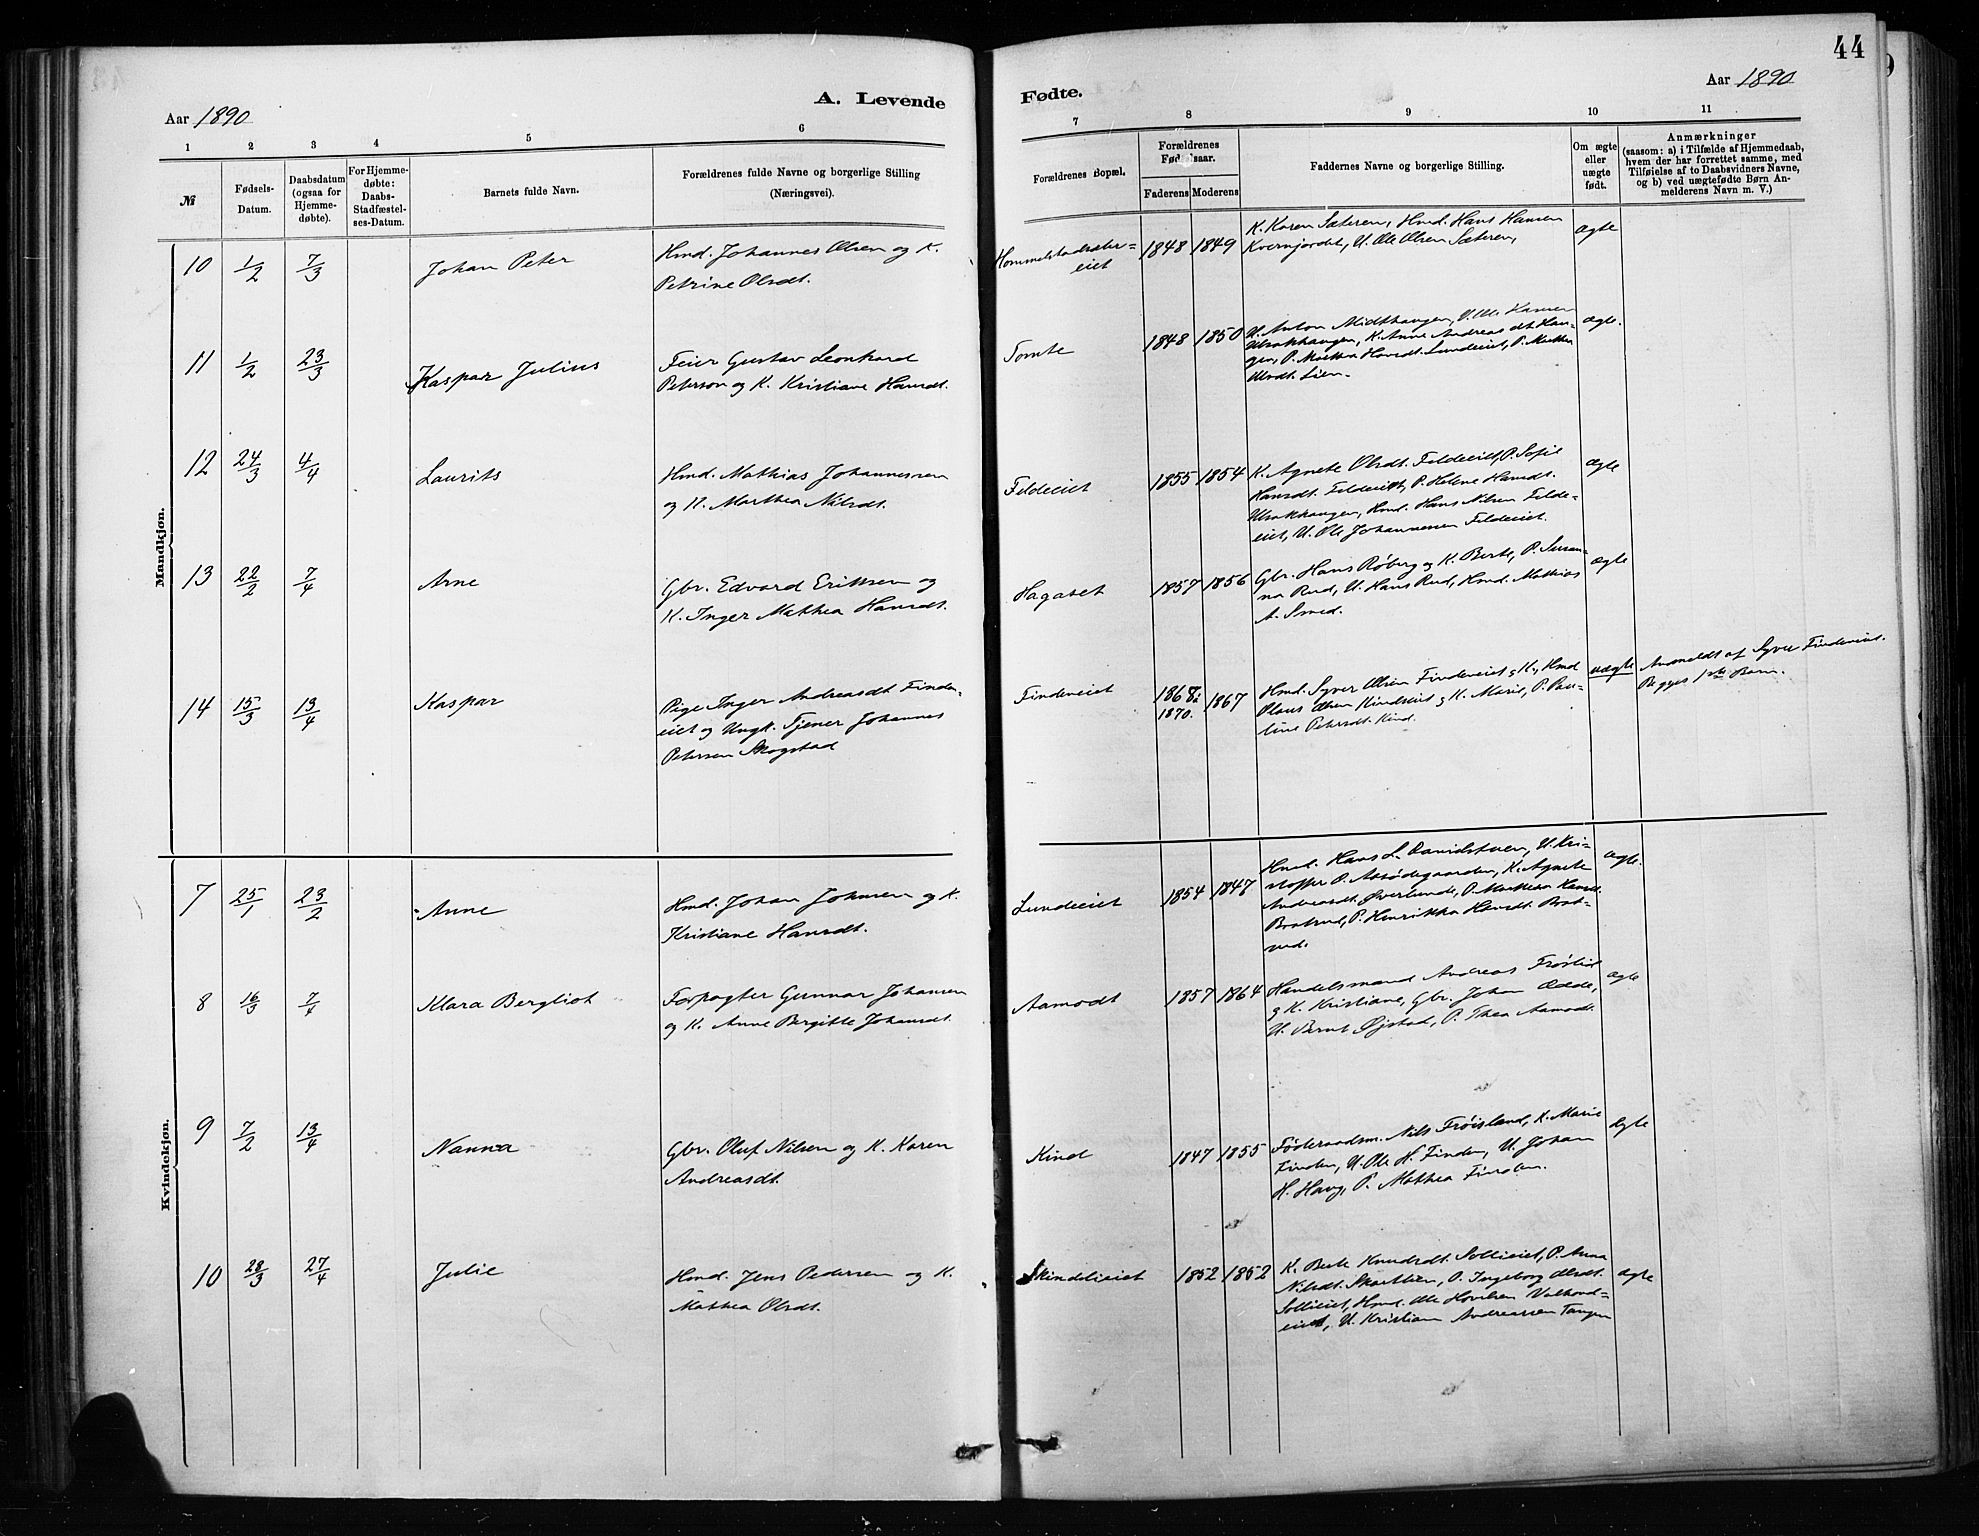 44
Aar 1890
A. Levende
Fødte.
Aar 1890
1 2 3 4 5 6 7 8 9 10 11
№
Fødsels-Datum.
Daabsdatum (ogsaa for Hjemmedøbte).
For Hjemmedøbte: Daabs-Stadfæstelses-Datum.
Barnets fulde Navn.
Forældrenes fulde Navne og borgerlige Stilling
(Næringsvei).
Forældrenes Bopæl.
Forældrenes Fødselsaar.
Faderens Moderens
Faddernes Navne og borgerlige Stilling.
Om ægte eller uægte født.
Anmærkninger
(saasom: a) i Tilfælde af Hjemmedaab,
hvem der har forrettet samme, med
Tilføielse af to Daabsvidners Navne,
og b) ved uægtefødte Børn An-
melderens Navn m. V.)
Mandkjøn.
10 1/2 7/3 Johan Peter
Hmd. Johannes Olsen og K.
Petrine Olsdt.
eiet
1848 1849
K. Karen Sæteren, Hmd. Hans Hansen
Kvernjordet, U. Ole Olsen Sæteren,
ægte
11 1/2 23/3 Kaspar Julius
Feier Gustav Leonhard
Peterson og K. Kristiane Hansdt.
Tomte
1848 1850
U. Anton Midthaugen, U. Ole Hansen
Ulsakhaugen, K. Anne Andreasdt. Hau-
gen, P. Mathea Hansdt. Lundeeiet, P. Mathea
Olsdt. Lien.
ægte.
12 24/3 4/4 Laurits
Hmd. Mathias Johannessen
og K. Marthea Nilsdt.
Feldeeiet
1855 1854
K. Agnete Olsdt. Feldeeiet, P. Sofie
Hansdt. Feldeeiet, P. Helene Hansdt.
Ulsakhaugen, Hmd. Hans Nilsen Felde-
eiet, U. Ole Johannessen Feldeeiet.
ægte
13 22/2 7/4 Arne
Gbr. Edvard Eriksen og
K. Inger Mathea Hansdt.
Hagaset
1857 1856
Gbr. Hans Røberg og K. Berte, P. Susan-
na Rud, U. Hans Rud, Hmd. Mathias
A. Smed.
ægte
14 15/3 13/4 Kaspar
Pige Inger Andreasdt. Finden-
eiet og Ungk. Tjener Johannes
Petersen Skogstad
Findeneiet
1868 à
1870.
1867
Hmd. Syver Olsen Findeneiet og K., Hmd.
Olaus Olsen Kindseiet og K. Marie, P. Pau-
line Petersdt. Kind.
uægte
Anmeldt af Syver Findeneiet.
Begges 1ste Barn.
Kvindekjøn.
7 25/1 23/2 Anne
Hmd. Johan Johnsen og K.
Kristiane Hansdt.
Lundeeiet
1854 1847
Hmd. Hans L. Davidstuen, U. Kri-
stoffer P. , K. Agnete
Andreasdt. Øverlunde, P. Mathea Hansdt.
Bratrud, P. Henrikka Hansdt. Brat-
rud.
ægte.
8 16/3 7/4 Klara Bergliot
Forpagter Gunnar Johansen
og K. Anne Birgitte Johansdt.
Aamodt
1857 1864
Handelsmand Andreas Frøslid
og K. Kristiane, Gbr. Johan Odde,
U. Bernt Øistad, P. Thea Aamodt.
ægte
9 7/2 13/4 Nanna
Gbr. Oluf Nilsen og K. Karen
Andreasdt.
Kind
1847 1855
Føderaadsm. Nils Frøisland, K. Marie
Finden, U. Ole H. Finden, U. Johan
H. Haug, P. Mathea Finden.
ægte
10 28/3 27/4 Julie
Hmd. Jens Pedersen og K.
Mathea Olsdt.
Skindelieiet
1852 1852
K. Berte Knudsdt. Sollieiet, P. Anna
Nilsdt. Skartlien, P. Ingeborg Olsdt.
Sollieiet, Hmd. Ole Hovelsen
eiet, U. Kristian Andreassen Tangen
ægte